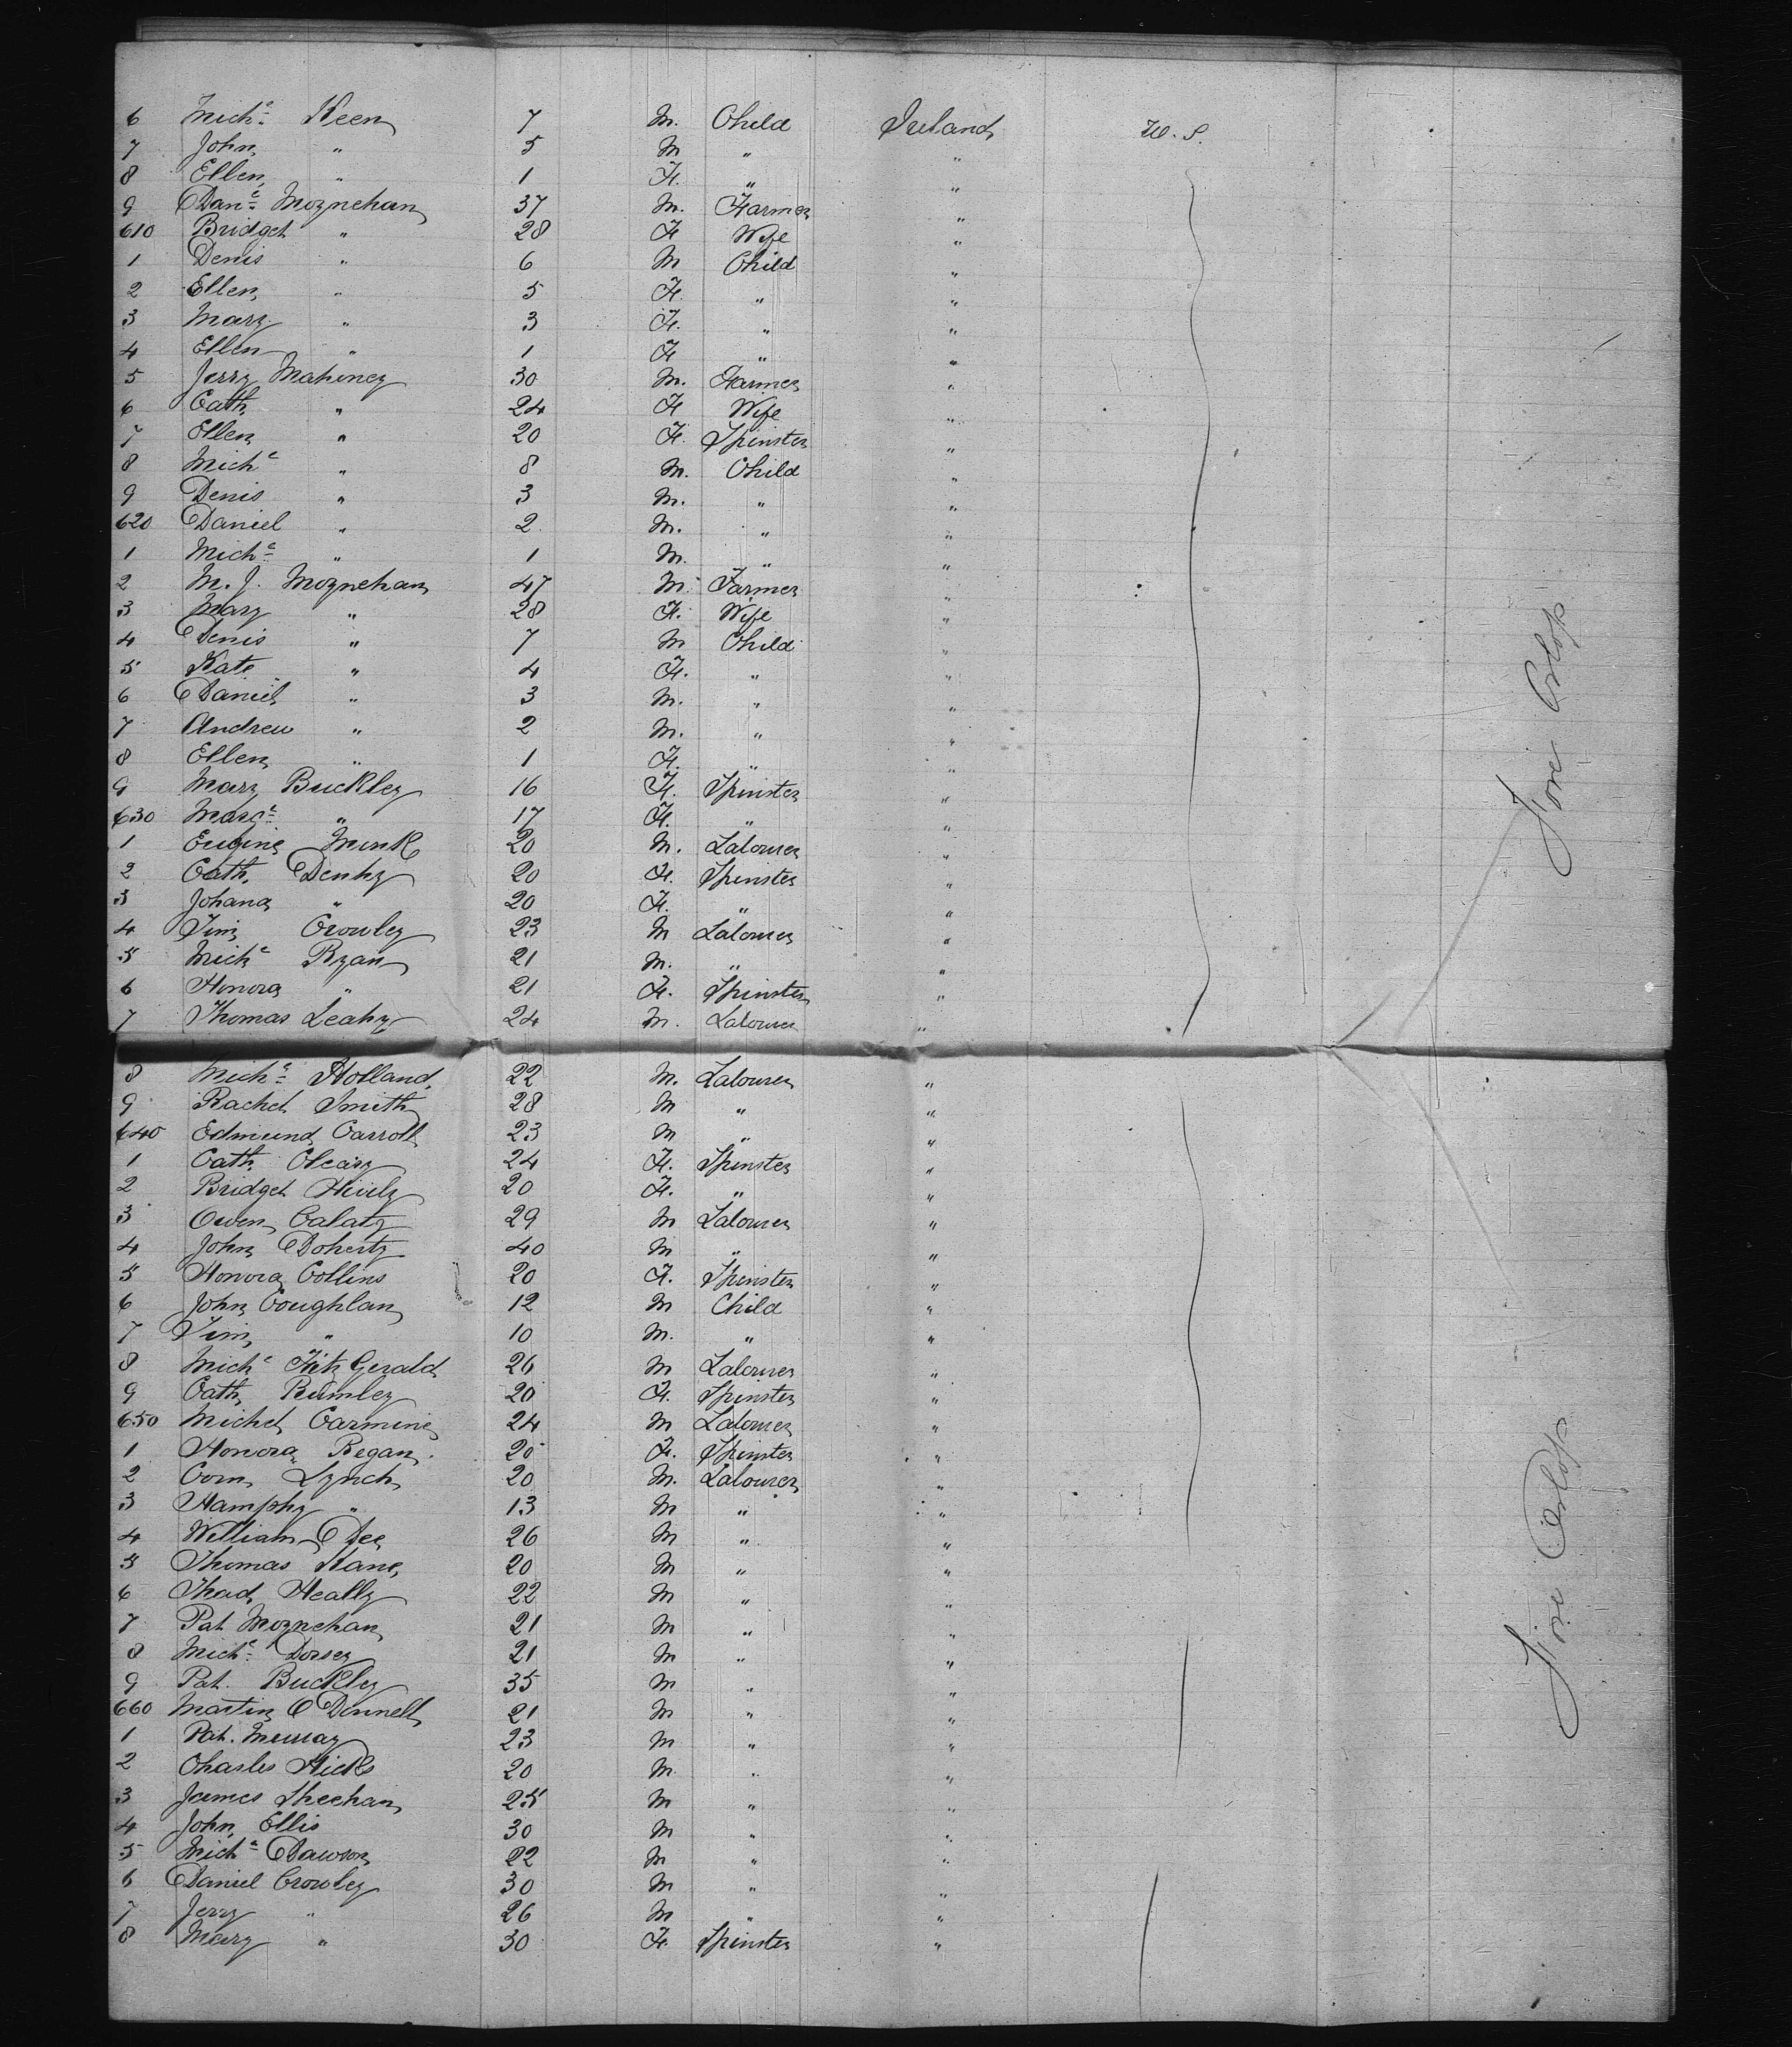 6 Mich<sup>l</sup> Keen 7 M. Child Ireland U. S.
7 John " 5 M " "
8 Ellen " 1 F. " "
9 Dan<sup>l</sup> Moynehan 37 M. Farmer "
610 Bridget " 28 F Wife "
1 Denis " 6 M Child "
2 Ellen " 5 F. " "
3 Mary " 3 F. " "
4 Ellen " 1 F " "
5 Jerry Mahoney 30 M. Farmer "
6 Cath " 24 F Wife "
7 Ellen " 20 F. Spinster "
8 Mich<sup>l</sup> " 8 M. Child "
9 Denis " 3 M. " "
620 Daniel " 2 M. " "
1 Mich<sup>l</sup> " 1 M. " "
2 M. J. Moynehan 47 M. Farmer "
3 Mary " 28 F. Wife "
4 Denis " 7 M Child "
5 Kate " 4 F. " "
6 Daniel " 3 M. " "
7 Andrew " 2 M. " "
8 Ellen " 1 F. " "
9 Mary Buckley 16 F. Spinster "
630 Marg<sup>t</sup> " 17 F. " "
1 Eugine 20 M. Labourer "
2 Cath. Denhy 20 F. Spinster "
3 Johana " 20 F. " "
4 Tim Crowley 23 M Labourer "
5 Mich<sup>l</sup> Ryan 21 M. " "
6 Honora " 21 F. Spinster "
7 Thomas Leahy 24 M. Labourer "
8 Mich<sup>l</sup> Holland 22 M. Labourer "
9 Rachel Smith 28 M " "
640 Edmund Carroll 23 M " "
1 Cath Oleary 24 F. Spinster "
2 Bridget 20 F. " "
3 Owen Calaty 29 M Labourer "
4 John Doherty 40 M " "
5 Honora Collins 20 F. Spinster "
6 John Coughlan 12 M Child "
7 Tim " 10 M. " "
8 Mich<sup>l</sup> Fitz Gerald 26 M Labourer "
9 Cath Bumley 20 F. Spinster "
650 Michel Carmine 24 M Labourer "
1 Honora Regan 20 F. Spinster "
2 Corn Lynch 20 M. Labourer "
3 Hamphy " 13 M " "
4 William Dee 26 M " "
5 Thomas Kane 20 M " "
6 Thad Heally 22 M " "
7 Pat Moynehan 21 M " "
8 Mich<sup>l</sup> Dorsey 21 M " "
9 Pat. Buckley 35 M " "
660 Martin O Donnell 21 M " "
1 Pat. Murray 23 M " "
2 Charles Hicks 20 M " "
3 James Sheehan 25 M " "
4 John Ellis 30 M " "
5 Mich<sup>l</sup> Dawson 22 M " "
6 Daniel Crowley 30 M " "
7 Jerry " 26 M " "
8 Mary " 30 F. Spinster "
Fore Orlop
Fore Orlop